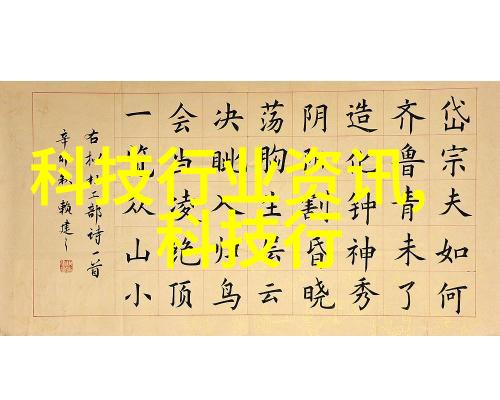 科技行业资讯,
科技行
岱宗夫如何
齐鲁青未了
造化钟神秀
阴阳割昏晓
荡胸生层云
决眦入归鸟
会当凌绝顶
一览众山小
工部诗一首
辛卯 赖建